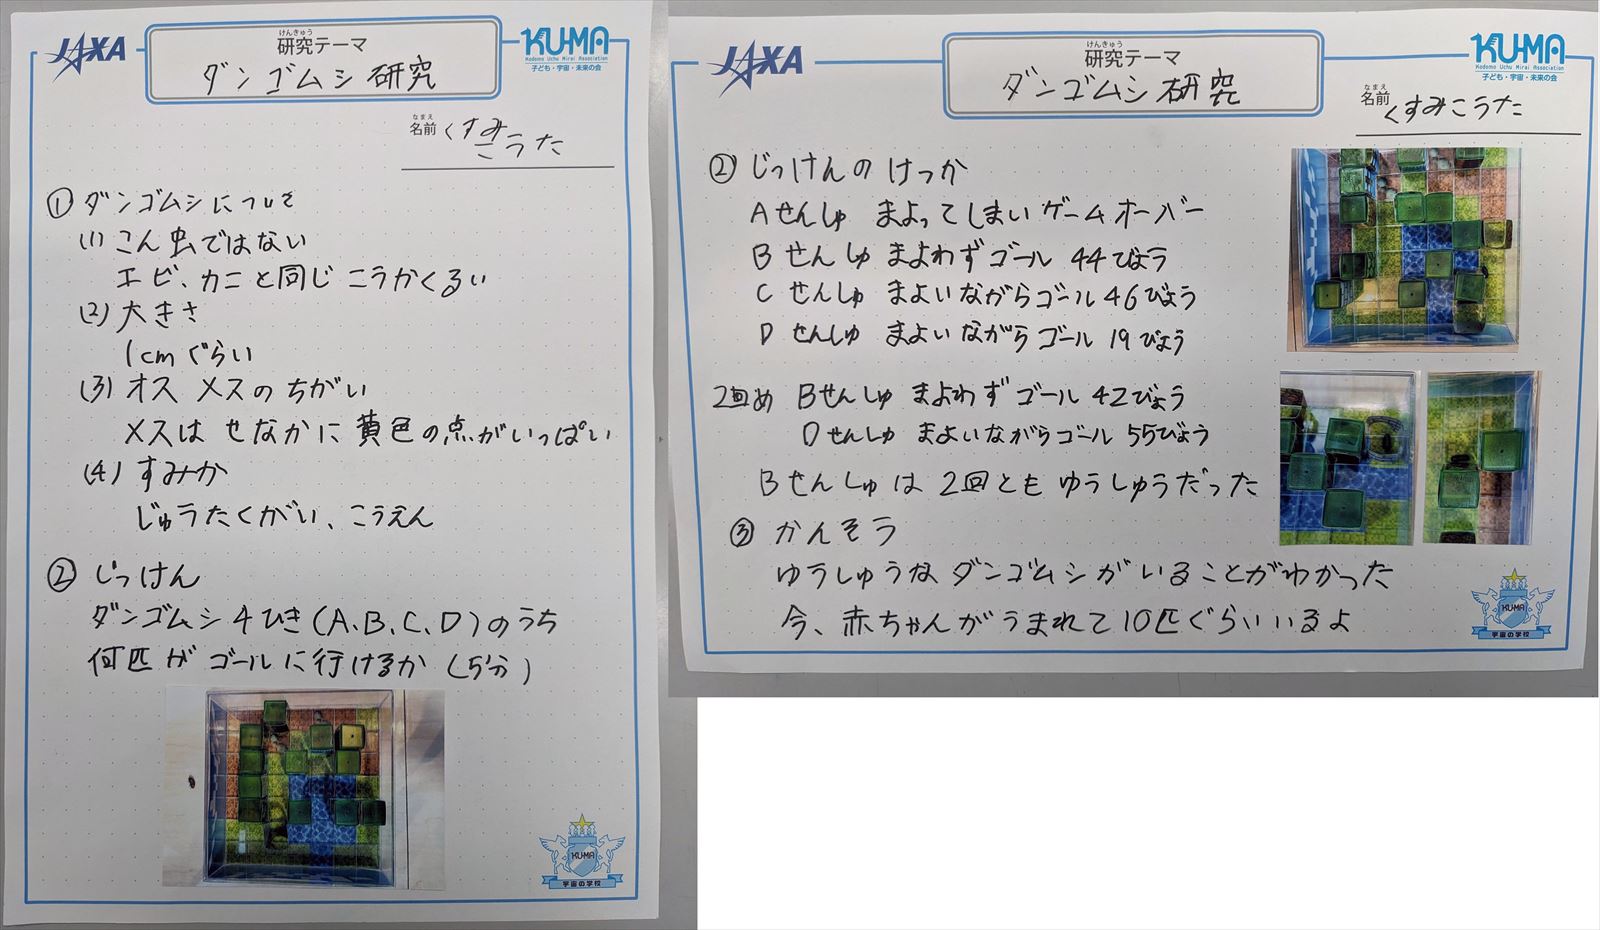 JAXA
けんきゅう
研究テーマ
ダンゴムシ研究
KU-MA
Kodomo Uchu Mirai Association
子ども・宇宙・未来の会
なまえ
名前
くすみ
こうた
① ダンゴムシについて
(1) こん虫ではない
エビ、カニと同じ こうかくるい
(2) 大きさ
1cmぐらい
(3) オス メスのちがい
メスは せなかに 黄色の点がいっぱい
(4) すみか
じゅうたくがい、こうえん
② じっけん
ダンゴムシ4ひき(A、B、C、D)のうち
何匹が ゴールに行けるか (5分)
KU-MA
宇宙の学校
JAXA
けんきゅう
研究テーマ
ダンゴムシ研究
KU-MA
Kodomo Uchu Mirai Association
子ども・宇宙・未来の会
なまえ
名前
くすみこうた
② じっけんの けっか
Aせんしゅ まよってしまいゲームオーバー
Bせんしゅ まよわずゴール 44びょう
Cせんしゅ まよいながらゴール46びょう
Dせんしゅ まよいながらゴール 19びょう
2回め Bせんしゅ まよわずゴール 42びょう
Dせんしゅ まよいながらゴール 55びょう
Bせんしゅは 2回とも ゆうしゅうだった
③ かんそう
ゆうしゅうな ダンゴムシがいることがわかった
今、赤ちゃんがうまれて10匹ぐらいいるよ
KU-MA
宇宙の学校